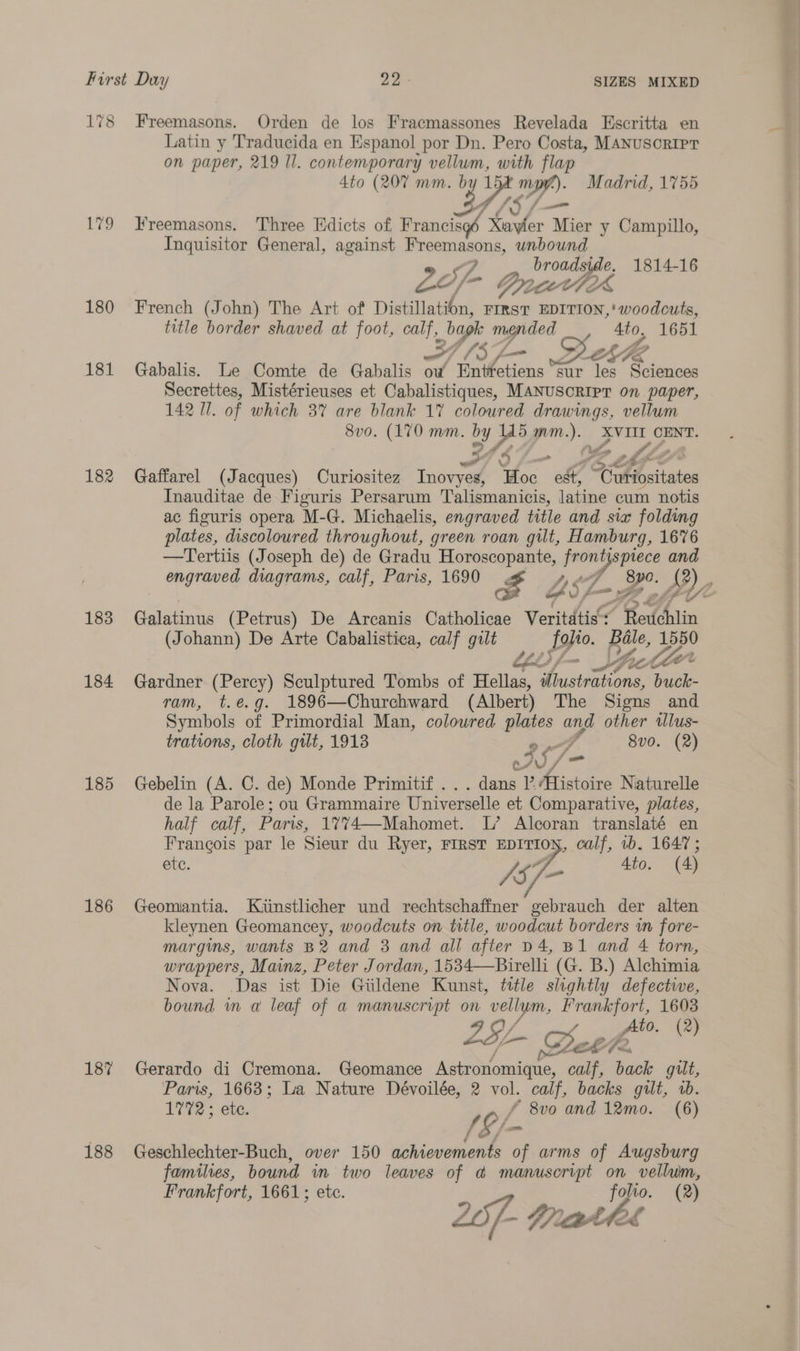 First Day 22 SIZES MIXED
178 Freemasons. Orden de los Fracmassones Revelada Escritta en
Latin y Traducida en Espanol por Dn. Pero Costa, MANUSCRIPT
on paper, 219 ll. contemporary vellum, with flap
4to (207 mm. by 152 mm.). Madrid, 1755
179 Freemasons. Three Edicts of Francisqó Xavier Mier y Campillo,
Inquisitor General, against Freemasons, unbound
broadside. 1814-16
20/-
180 French (John) The Art of Distillation, FIRST EDITION, woodcuts,
title border shaved at foot, calf, back mended 4to, 1651
181 Gabalis. Le Comte de Gabalis ou Entretiens sur les Sciences
Secrettes, Mistérieuses et Cabalistiques, MANUSCRIPT on paper,
142 ll. of which 37 are blank 17 coloured drawings, vellum
8vo. (170 mm. by 115 mm.). XVIII CENT.
182 Gaffarel (Jacques) Curiositez Inovyes, Hoc est, Curiositates
Inauditae de Figuris Persarum Talismanicis, latine cum notis
ac figuris opera M-G. Michaelis, engraved title and six folding
plates, discoloured throughout, green roan gilt, Hamburg, 1676
—Tertiis (Joseph de) de Gradu Horoscopante, frontispiece and
engraved diagrams, calf, Paris, 1690 8vo. (2)
183 Galatinus (Petrus) De Arcanis Catholicae Veritatis: Reuchlin
(Johann) De Arte Cabalistica, calf gilt folio. Bâle, 1550
184 Gardner (Percy) Sculptured Tombs of Hellas, illustrations, buck-
ram, t.e.g. 1896—Churchward (Albert) The Signs and
Symbols of Primordial Man, coloured plates and other illus-
trations, cloth gilt, 1913 8vo. (2)
35/-
185 Gebelin (A. C. de) Monde Primitif . . . dans l'Histoire Naturelle
de la Parole; ou Grammaire Universelle et Comparative, plates,
half calf, Paris, 1774—Mahomet. L' Alcoran translaté en
François par le Sieur du Ryer, FIRST EDITION, calf, ib. 1647;
etc. 4to. (4)
15/-
186 Geomantia. Künstlicher und rechtschaffner gebrauch der alten
kleynen Geomancey, woodcuts on title, woodcut borders in fore-
margins, wants B2 and 3 and all after D4, B1 and 4 torn,
wrappers, Mainz, Peter Jordan, 1534—Birelli (G. B.) Alchimia
Nova. Das ist Die Güldene Kunst, title slightly defective,
bound in a leaf of a manuscript on vellum, Frankfort, 1603
4to. (2)
187 Gerardo di Cremona. Geomance Astronomique, calf, back gilt,
Paris, 1663; La Nature Dévoilée, 2 vol. calf, backs gilt, ib.
1772; etc. 8vo and 12mo. (6)
188 Geschlechter-Buch, over 150 achievements of arms of Augsburg
families, bound in two leaves of a manuscript on vellum,
Frankfort, 1661; etc. folio. (2)